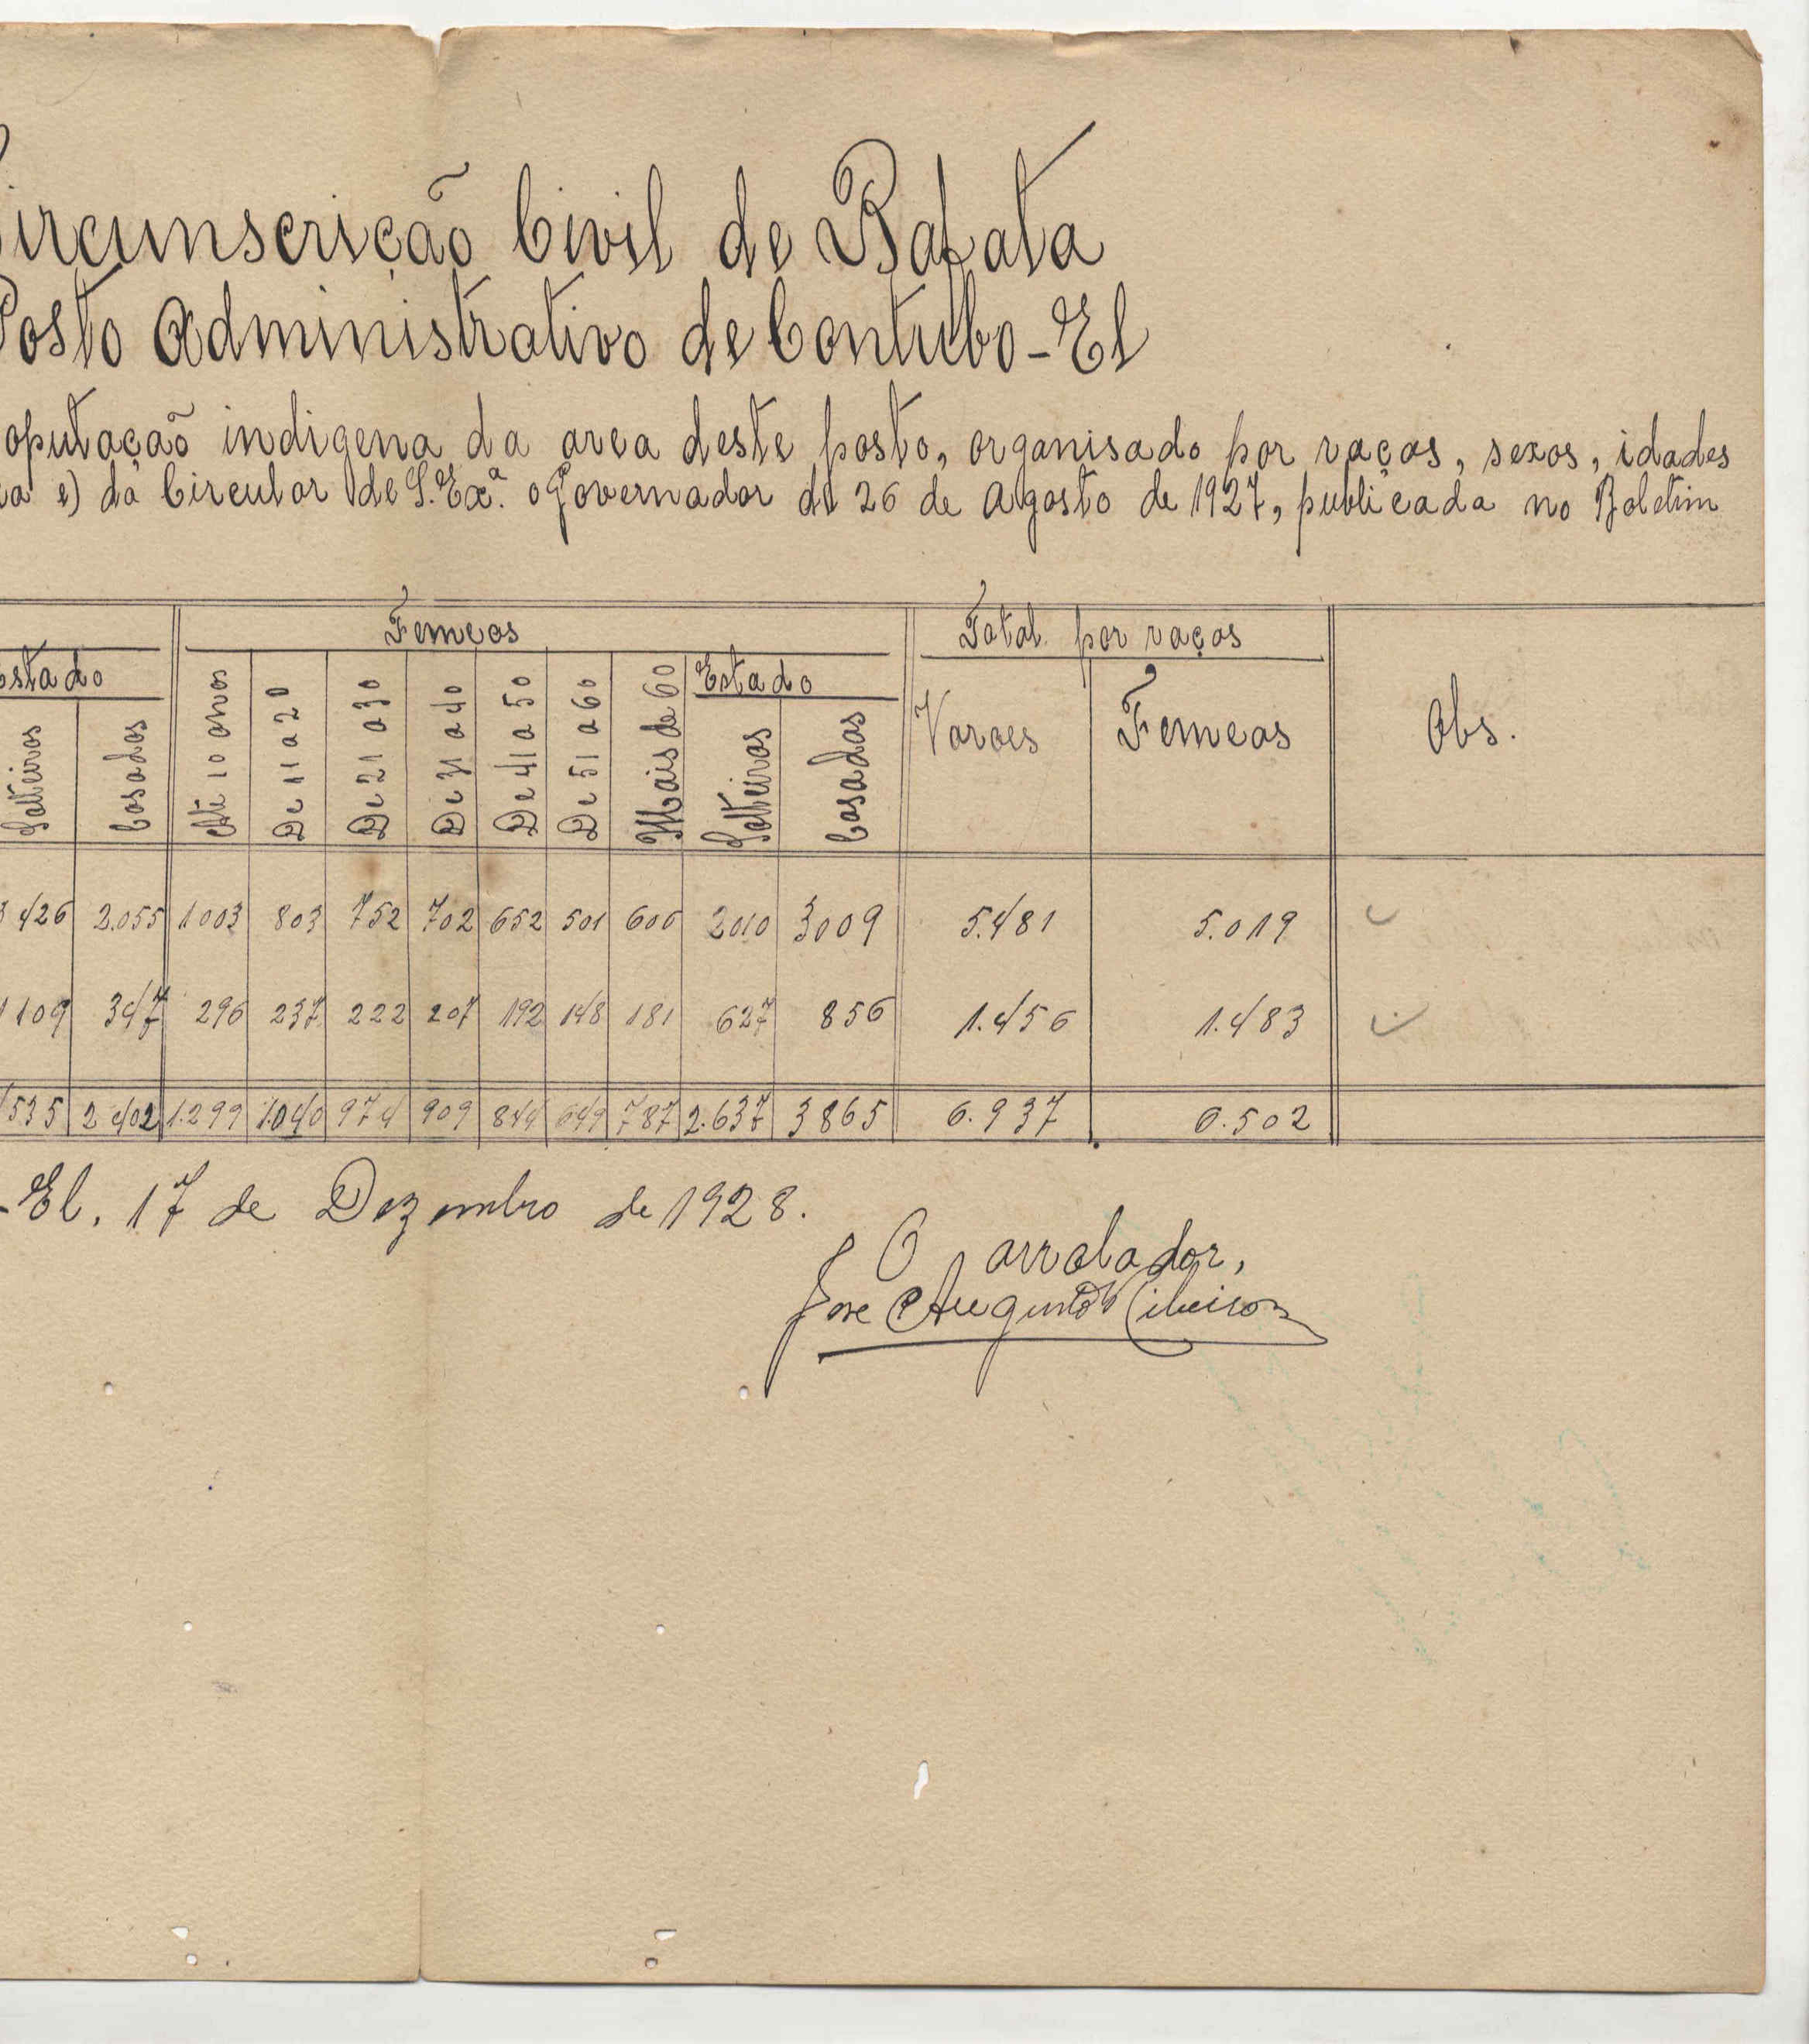 Circunscrição Civil de Bafata
Posto Administrativo de Contubo-El
opulação indigena da area deste posto, organisado por raças, sexos, idades
e) da Circular de S. Exª. o Governador de 26 de Agosto de 1927, publicada no Boletim
Femeas Total por raças
Estado Estado
Solteiros Casados Até 10 anos De 11 a 20 De 21 a 30 De 31 a 40 De 41 a 50 De 51 a 60 Mais de 60 Solteiras Casadas Varoes Femeas Obs.
3426 2.055 1003 803 752 702 652 501 606 2010 3009 5.481 5.019
1109 347 296 237 222 207 192 148 181 627 856 1.456 1.483
4535 2402 1.299 1.040 974 909 844 649 787 2.637 3865 6.937 6.502
-El, 17 de Dezembro de 1928.
O arrolador,
José Augusto Ribeiro